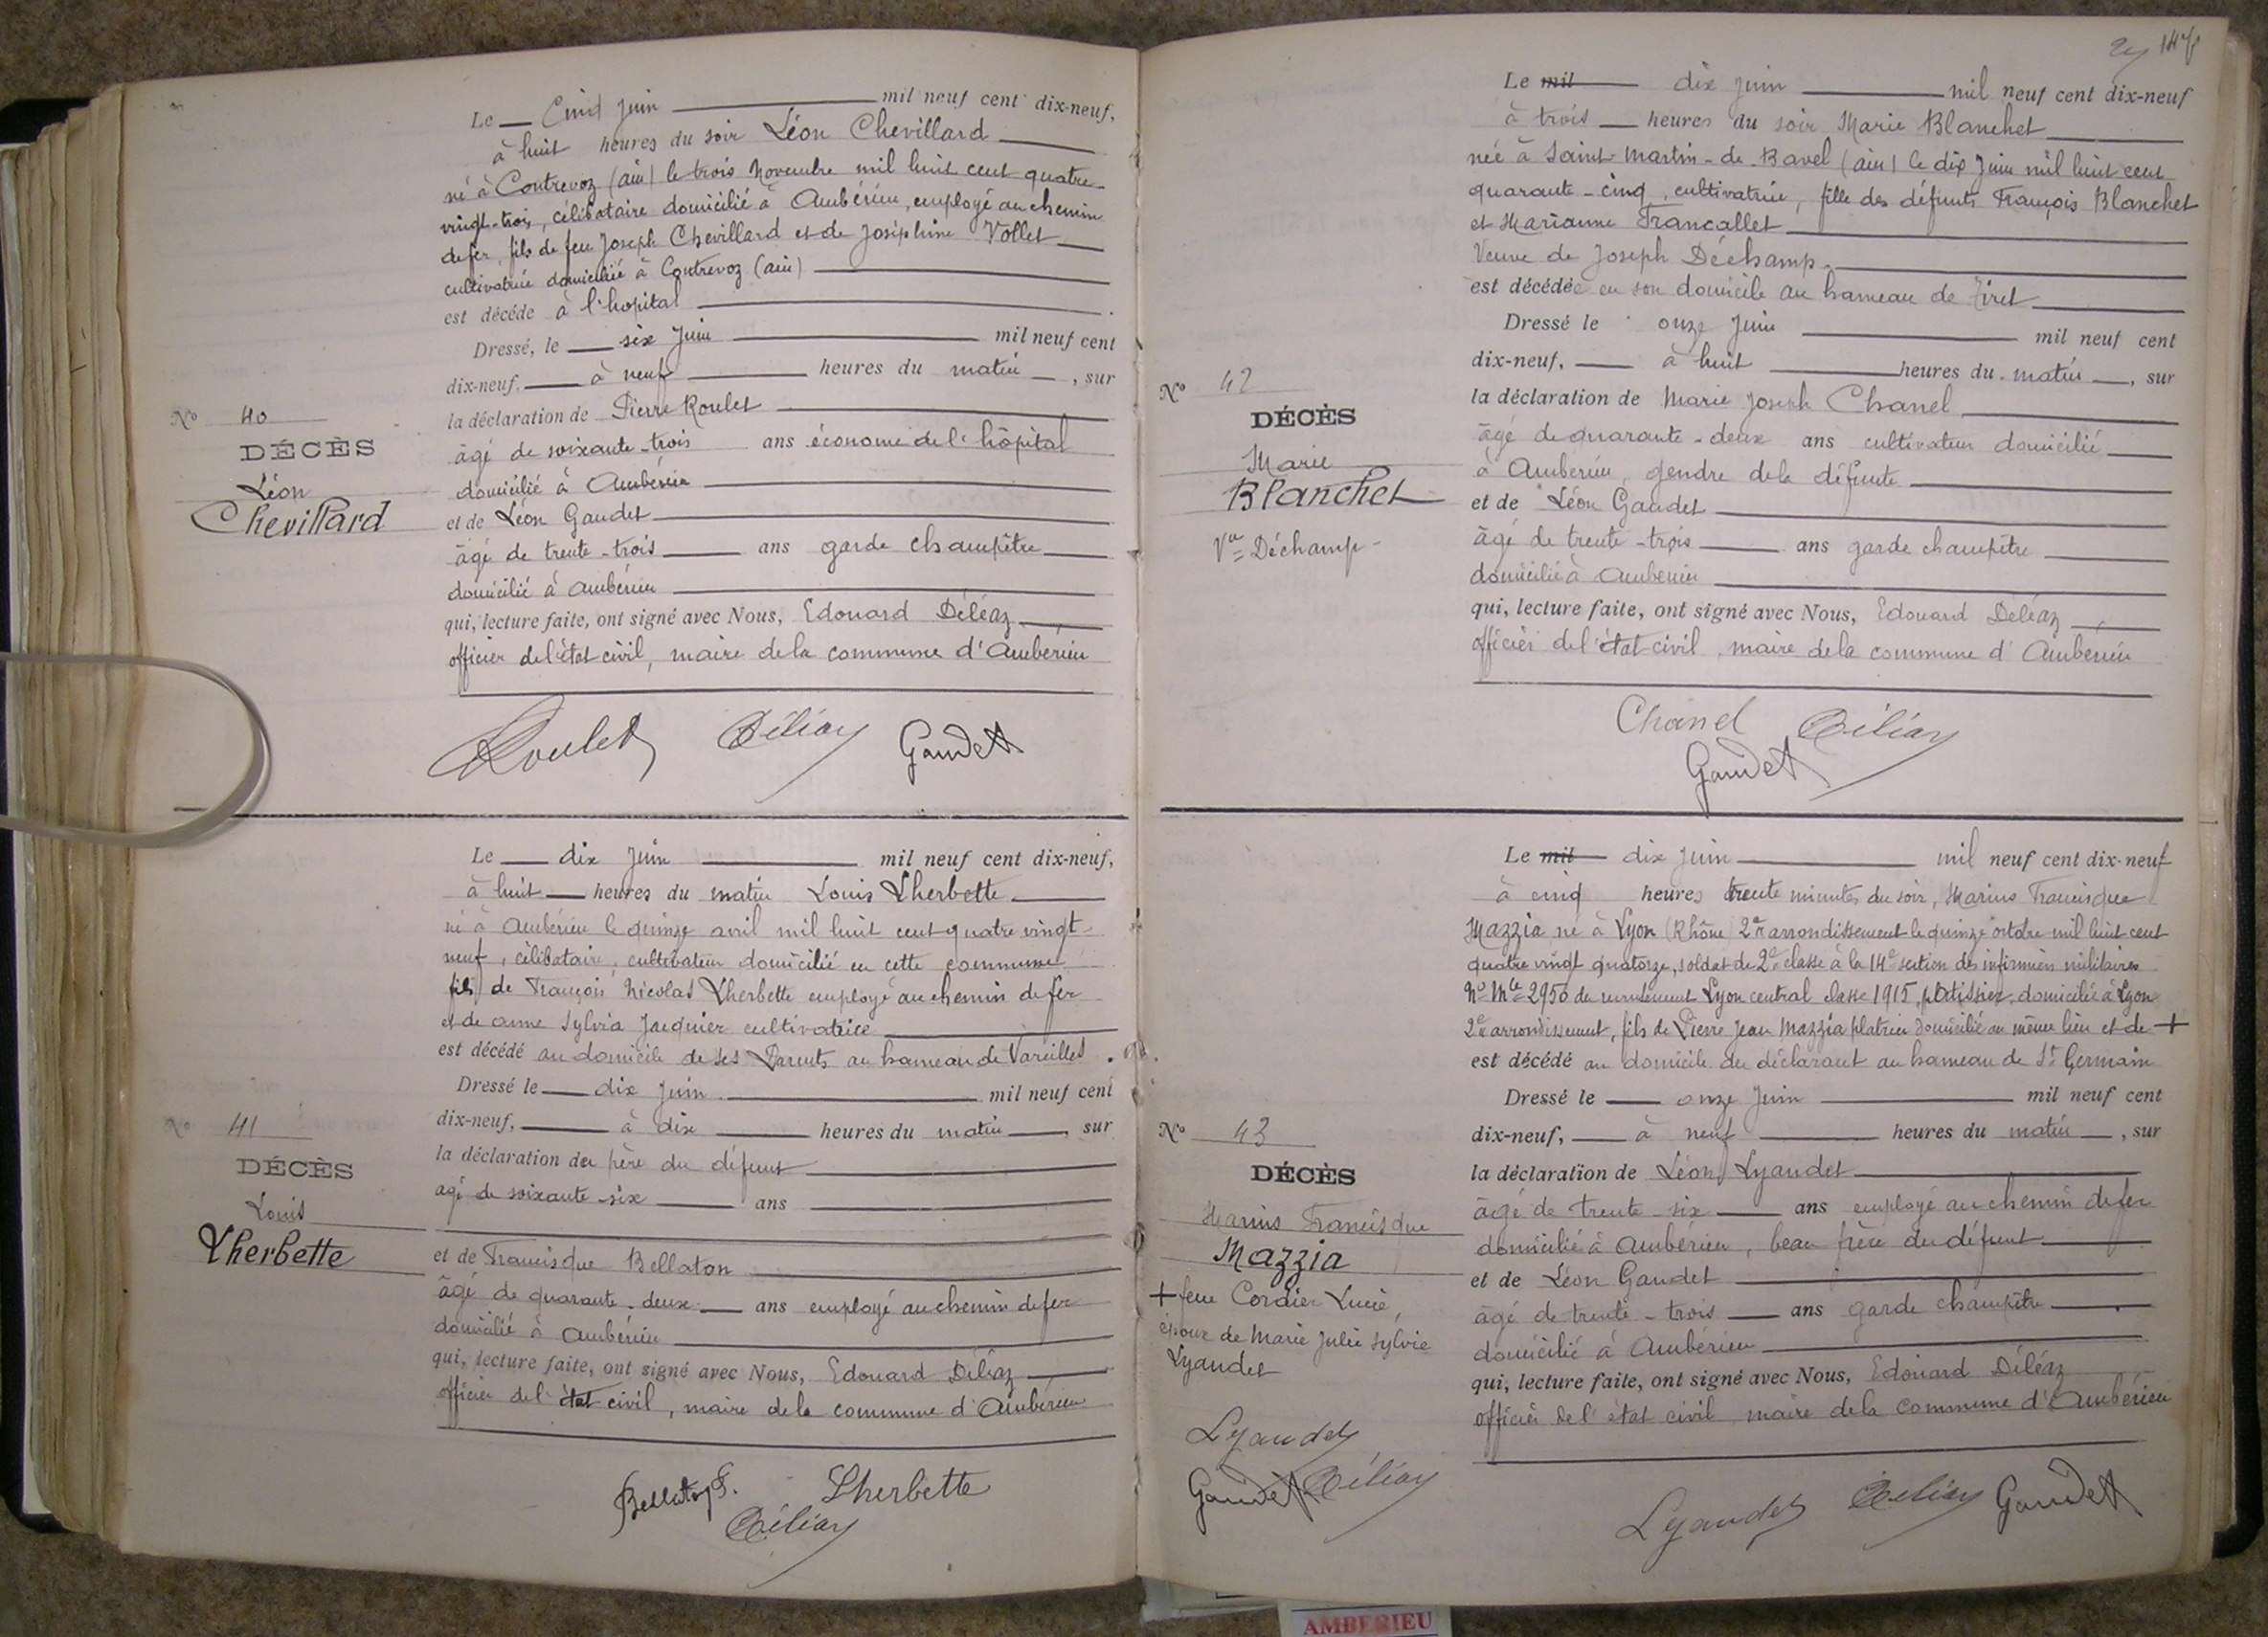 Le — cinq Juin — mil neuf cent dix-neuf,
à huit heures du soir Léon Chevillard
né à Contrevoz (ain) le trois Novembre mil huit cent quatre-
vingt-trois, célibataire domicilié à Ambérieu, employé au chemin
de fer, fils de feu Joseph Chevillard et de Joséphine Vollet
cultivatrice domiciliée à Contrevoz (ain)
est décédé à l'hopital
Dressé, le — six Juin — mil neuf cent
dix-neuf. — à neuf — heures du matin —, sur
la déclaration de Pierre Roulet
âgé de soixante-trois ans économe de l'hôpital
domicilié à Ambérieu
et de Léon Gaudet
âgé de trente-trois — ans garde champêtre
domicilié à Ambérieu
qui, lecture faite, ont signé avec Nous, Edouard Déléaz
officier de l'état civil, maire de la commune d'Ambérieu
Roulet Déléaz Gaudet
No 40
DÉCÈS
Léon
Chevillard
Le — dix Juin — mil neuf cent dix-neuf,
à huit — heures du matin Louis Lherbette
né à Ambérieu le quinze avril mil huit cent quatre vingt-
neuf, célibataire, cultivateur domicilié en cette commune
fils de François Nicolas Lherbette employé au chemin de fer
et de anne Sylvia Jacquier cultivatrice
est décédé au domicile de ses Parents au hameau de Vareilles.
Dressé le — dix Juin — mil neuf cent
dix-neuf, — à dix — heures du matin —, sur
la déclaration du père du défunt
agé de soixante-six — ans
et de Francisque Bellaton
âgé de quarante-deux — ans employé au chemin de fer
domicilié à Ambérieu
qui, lecture faite, ont signé avec Nous, Edouard Déléaz
officier de l'état civil, maire de la commune d'Ambérieu
Bellaton Lherbette
Déléaz
No 41
DÉCÈS
Louis
Lherbette
147
Le mil dix Juin — mil neuf cent dix-neuf
à trois — heures du soir Marie Blanchet
née à Saint-Martin-de-Bavel (ain) le dix Juin mil huit cent
quarante-cinq, cultivatrice, fille des défunts François Blanchet
et Marianne Francallet
Veuve de Joseph Déchamp
est décédée en son domicile au hameau de Tiret
Dressé le onze Juin — mil neuf cent
dix-neuf, — à huit — heures du matin —, sur
la déclaration de Marie Joseph Chanel
âgé de quarante-deux ans cultivateur domicilié
à Ambérieu, gendre de la défunte
et de Léon Gaudet
âgé de trente-trois — ans garde champêtre
domicilié à Ambérieu
qui, lecture faite, ont signé avec Nous, Edouard Déléaz
officier de l'état civil, maire de la commune d'Ambérieu
Chanel Déléaz
Gaudet
No 42
DÉCÈS
Marie
Blanchet
Vve Déchamp
Le mil dix Juin — mil neuf cent dix-neuf
à cinq heures trente minutes du soir, Marius Francisque
Mazzia né à Lyon (Rhône) 2e arrondissement le quinze octobre mil huit cent
quatre vingt quatorze, soldat de 2e classe à la 14e section des infirmiers militaires
No Mle 2950 du recrutement Lyon central classe 1915, pâtissier, domicilié à Lyon
2e arrondissement, fils de Pierre Jean Mazzia platrier domicilié au même lieu et de +
est décédé au domicile du déclarant au hameau de St Germain
Dressé le — onze Juin — mil neuf cent
dix-neuf, — à neuf — heures du matin —, sur
la déclaration de Léon Lyaudet
âgé de trente-six — ans employé au chemin de fer
domicilié à Ambérieu, beau frère du défunt
et de Léon Gaudet
âgé de trente-trois — ans garde champêtre
domicilié à Ambérieu
qui, lecture faite, ont signé avec Nous, Edouard Déléaz
officier de l'état civil maire de la commune d'Ambérieu
Lyaudet Déléaz Gaudet
No 43
DÉCÈS
Marius Francisque
Mazzia
+ feue Cordier Lucie,
époux de Marie Julie Sylvie
Lyaudet
Lyaudet
Gaudet Déléaz
AMBERIEU